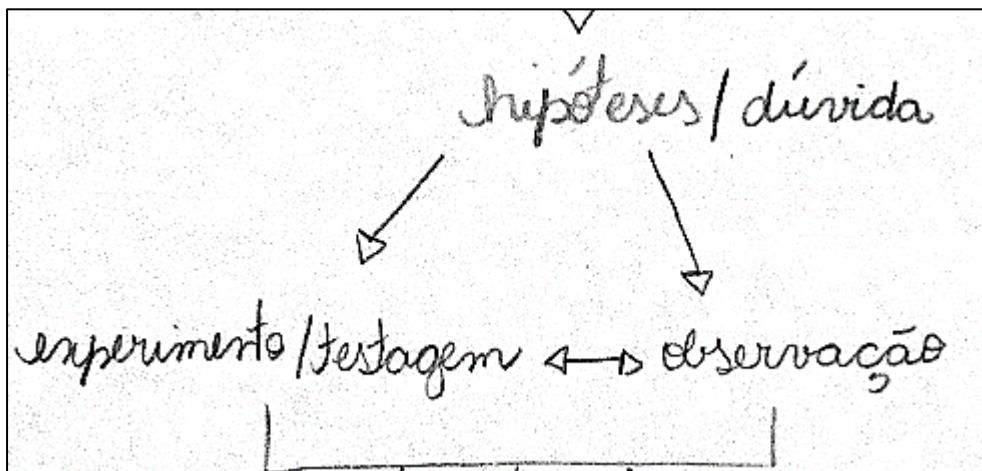 hipóteses / dúvida
experimento / testagem observação